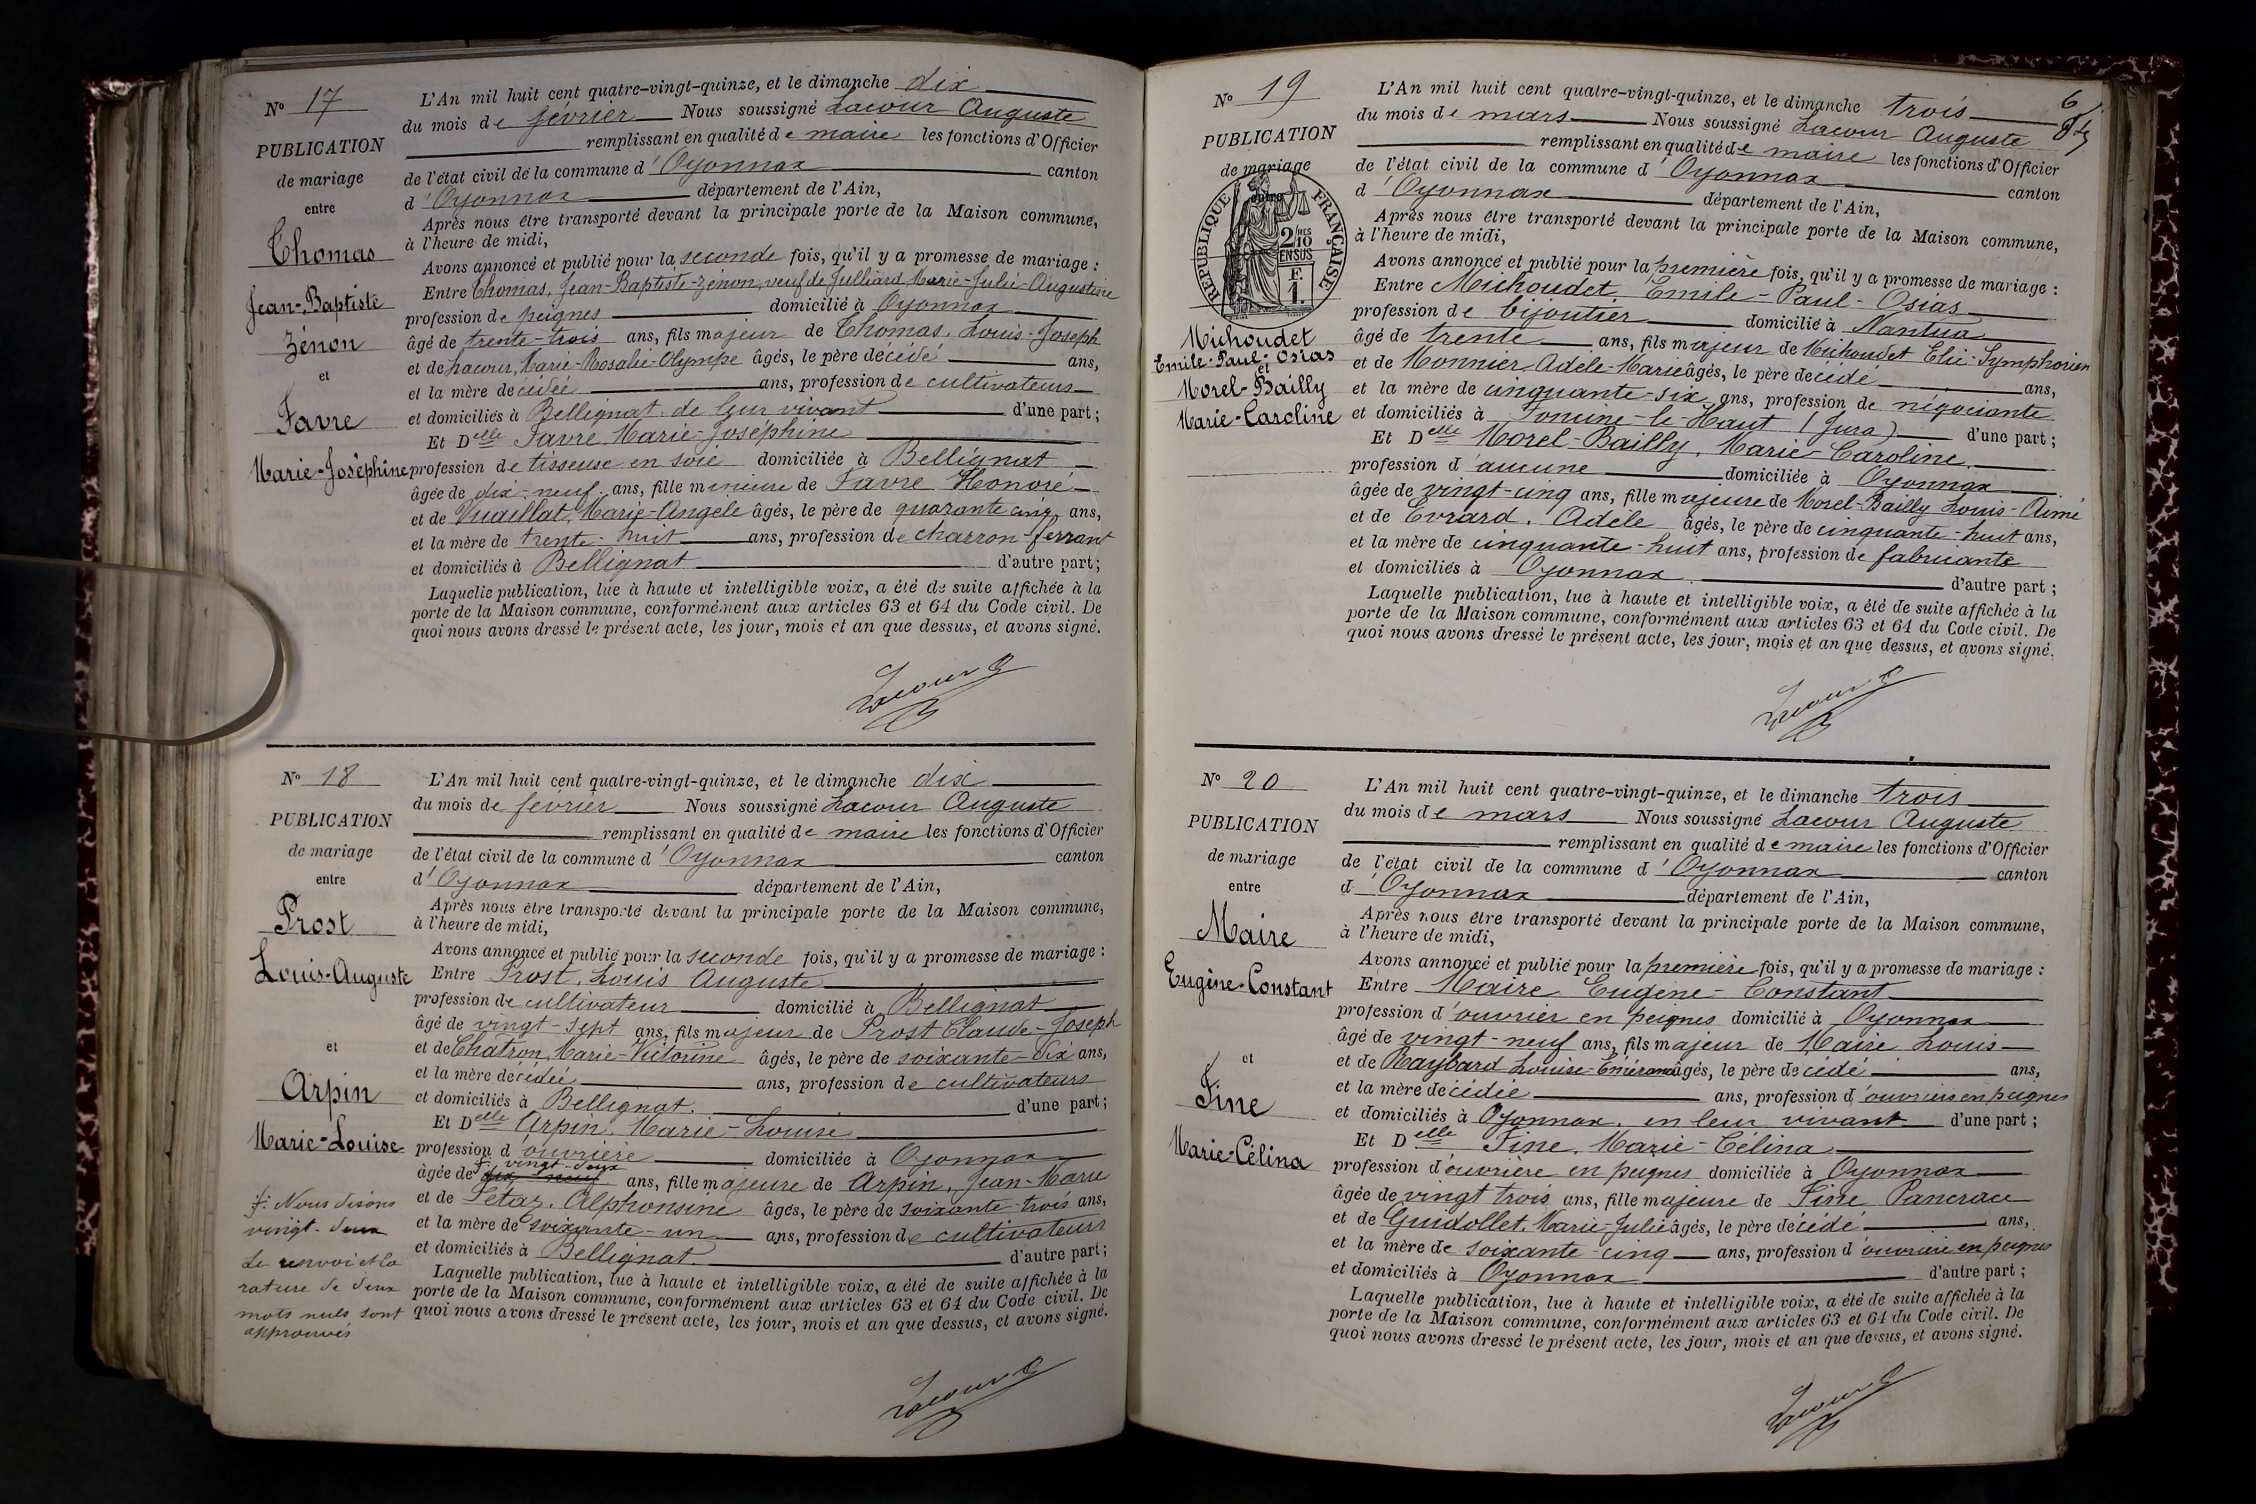 N° 17
PUBLICATION
de mariage
entre
Thomas
Jean-Baptiste
Zénon
et
Favre
Marie-Joséphine
L'An mil huit cent quatre-vingt-quinze, et le dimanche dix
du mois de février Nous soussigné Lacour Auguste
remplissant en qualité de maire les fonctions d'Officier
de l'état civil de la commune d'Oyonnax canton
d'Oyonnax département de l'Ain,
Après nous être transporté devant la principale porte de la Maison commune,
à l'heure de midi,
Avons annoncé et publié pour la seconde fois, qu'il y a promesse de mariage :
Entre Thomas, Jean-Baptiste-Zénon, veuf de Julliard Marie-Julie-Augustine
profession de peignes domicilié à Oyonnax
âgé de trente-trois ans, fils majeur de Thomas, Louis-Joseph
et de Lacour, Marie-Rosalie-Olympe âgés, le père décédé ans,
et la mère décédée ans, profession de cultivateurs
et domiciliés à Bellignat de leur vivant d'une part ;
Et Delle Favre Marie-Joséphine
profession de tisseuse en soie domiciliée à Bellignat
âgée de dix-neuf ans, fille mineure de Favre Honoré
et de Vuaillat, Marie-Angèle âgés, le père de quarante cinq ans,
et la mère de trente-huit ans, profession de charron-ferrant
et domiciliés à Bellignat d'autre part ;
Laquelle publication, lue à haute et intelligible voix, a été de suite affichée à la
porte de la Maison commune, conformément aux articles 63 et 64 du Code civil. De
quoi nous avons dressé le présent acte, les jour, mois et an que dessus, et avons signé.
Lacour A
N° 18
PUBLICATION
de mariage
entre
Prost
Louis-Auguste
et
Arpin
Marie-Louise
L'An mil huit cent quatre-vingt-quinze, et le dimanche dix
du mois de février Nous soussigné Lacour Auguste
remplissant en qualité de maire les fonctions d'Officier
de l'état civil de la commune d'Oyonnax canton
d'Oyonnax département de l'Ain,
Après nous être transporté devant la principale porte de la Maison commune,
à l'heure de midi,
Avons annoncé et publié pour la seconde fois, qu'il y a promesse de mariage :
Entre Prost, Louis Auguste
profession de cultivateur domicilié à Bellignat
âgé de vingt-sept ans, fils majeur de Prost Claude-Joseph
et de Chatron, Marie-Victorine âgés, le père de soixante-dix ans,
et la mère décédée ans, profession de cultivateurs
et domiciliés à Bellignat. d'une part ;
Et Delle Arpin, Marie-Louise
profession d'ouvrière domiciliée à Oyonnax
vingt-deux
âgée de dix-neuf ans, fille majeure de Arpin, Jean-Marie
et de Sétaz, Alphonsine âgés, le père de soixante-trois ans,
et la mère de soixante-un ans, profession de cultivateurs
et domiciliés à Bellignat. d'autre part ;
Laquelle publication, lue à haute et intelligible voix, a été de suite affichée à la
porte de la Maison commune, conformément aux articles 63 et 64 du Code civil. De
quoi nous avons dressé le présent acte, les jour, mois et an que dessus, et avons signé.
Nous disons
vingt-deux
Le renvoi et la
rature de deux
mots nuls sont
approuvés
Lacour A
6
N° 19
PUBLICATION
de mariage
entre
RÉPUBLIQUE FRANÇAISE
2/10
EN SUS
F.
1.
Michoudet
Emile-Paul-Osias
et
Morel-Bailly
Marie-Caroline
L'An mil huit cent quatre-vingt-quinze, et le dimanche trois
du mois de mars Nous soussigné Lacour Auguste
remplissant en qualité de maire les fonctions d'Officier
de l'état civil de la commune d'Oyonnax canton
d'Oyonnax département de l'Ain,
Après nous être transporté devant la principale porte de la Maison commune,
à l'heure de midi,
Avons annoncé et publié pour la première fois, qu'il y a promesse de mariage :
Entre Michoudet Emile-Paul-Osias
profession de bijoutier domicilié à Nantua
âgé de trente ans, fils majeur de Michoudet Elie-Symphorien
et de Monnier, Adèle-Marie âgés, le père décédé ans,
et la mère de cinquante-six ans, profession de négociante
et domiciliés à Foncine-le-Haut (Jura) d'une part ;
Et Delle Morel-Bailly, Marie-Caroline
profession d'aucune domiciliée à Oyonnax
âgée de vingt-cinq ans, fille majeure de Morel-Bailly Louis-Aimé
et de Evrard, Adèle âgés, le père de cinquante-huit ans,
et la mère de cinquante-huit ans, profession de fabricants
et domiciliés à Oyonnax d'autre part ;
Laquelle publication, lue à haute et intelligible voix, a été de suite affichée à la
porte de la Maison commune, conformément aux articles 63 et 64 du Code civil. De
quoi nous avons dressé le présent acte, les jour, mois et an que dessus, et avons signé.
Lacour A
N° 20
PUBLICATION
de mariage
entre
Maire
Eugène-Constant
et
Fine
Marie-Célina
L'An mil huit cent quatre-vingt-quinze, et le dimanche trois
du mois de mars Nous soussigné Lacour Auguste
remplissant en qualité de maire les fonctions d'Officier
de l'état civil de la commune d'Oyonnax canton
d'Oyonnax département de l'Ain,
Après nous être transporté devant la principale porte de la Maison commune,
à l'heure de midi,
Avons annoncé et publié pour la première fois, qu'il y a promesse de mariage :
Entre Maire Eugène-Constant
profession d'ouvrier en peignes domicilié à Oyonnax
âgé de vingt-neuf ans, fils majeur de Maire Louis
et de Raybard Louise-Emérance âgés, le père décédé ans,
et la mère décédée ans, profession d'ouvriers en peignes
et domiciliés à Oyonnax, en leur vivant d'une part ;
Et Delle Fine, Marie-Célina
profession d'ouvrière en peignes domiciliée à Oyonnax
âgée de vingt trois ans, fille majeure de Fine Pancrace
et de Guidollet, Marie-Julie âgés, le père décédé ans,
et la mère de soixante-cinq ans, profession d'ouvrière en peignes
et domiciliés à Oyonnax d'autre part ;
Laquelle publication, lue à haute et intelligible voix, a été de suite affichée à la
porte de la Maison commune, conformément aux articles 63 et 64 du Code civil. De
quoi nous avons dressé le présent acte, les jour, mois et an que dessus, et avons signé.
Lacour A